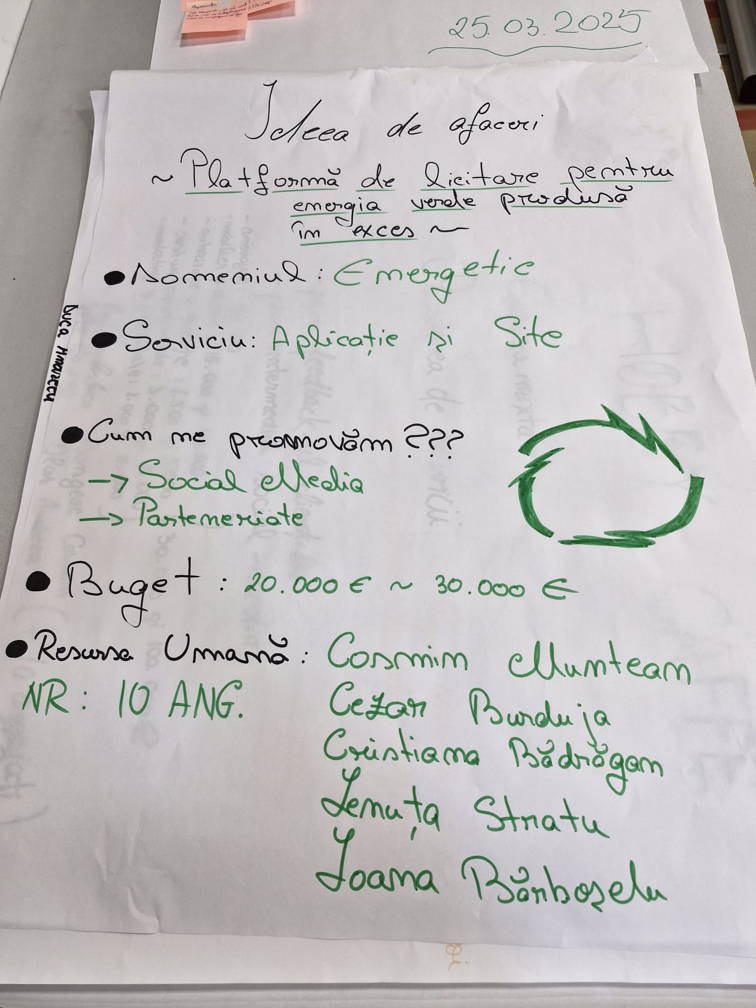 25.03.2025
Ideea de afaceri
~ Platformă de licitare pentru
energia verde produsă
în exces ~
● Domeniul: Energetic
● Serviciu: Aplicație și Site
● Cum ne promovăm ???
→ Social Media
→ Parteneriate
● Buget: 20.000 € ~ 30.000 €
● Resursa Umană: Cosmin Muntean
NR: 10 ANG.
Cezar Burduja
Cristiana Bădrăgan
Lenuța Stratu
Ioana Bărboșelu